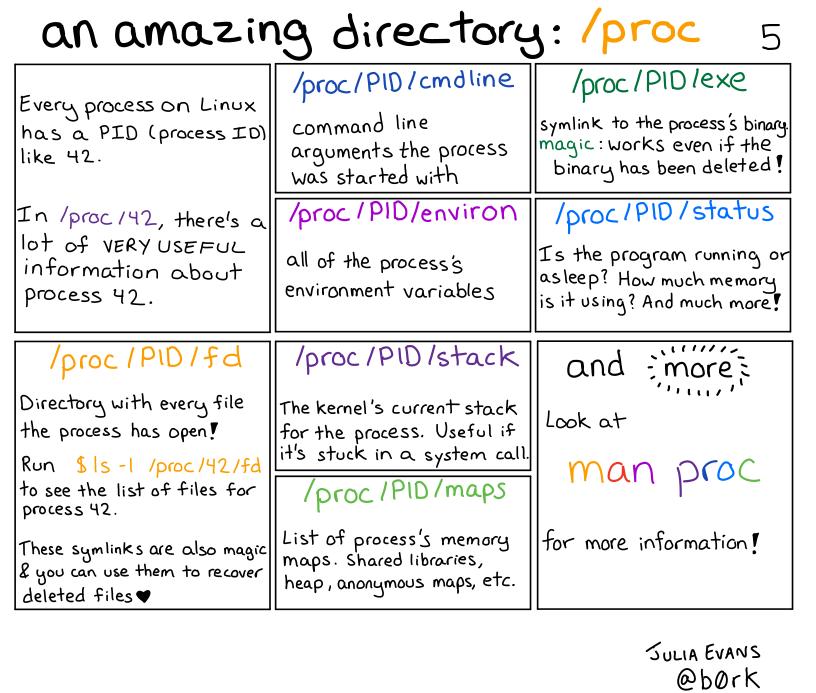 an amazing directory: /proc
5
Every process on Linux
has a PID (process ID)
like 42.
In /proc/42, there's a
lot of VERY USEFUL
information about
process 42.
/proc/PID/cmdline
command line
arguments the process
was started with
/proc/PID/exe
symlink to the process's binary.
magic: works even if the
binary has been deleted!
/proc/PID/environ
all of the process's
environment variables
/proc/PID/status
Is the program running or
asleep? How much memory
is it using? And much more!
/proc/PID/fd
Directory with every file
the process has open!
Run $ ls -l /proc/42/fd
to see the list of files for
process 42.
These symlinks are also magic
& you can use them to recover
deleted files ♥
/proc/PID/stack
The kernel's current stack
for the process. Useful if
it's stuck in a system call.
/proc/PID/maps
List of process's memory
maps. Shared libraries,
heap, anonymous maps, etc.
and more
Look at
man proc
for more information!
JULIA EVANS
@b0rk